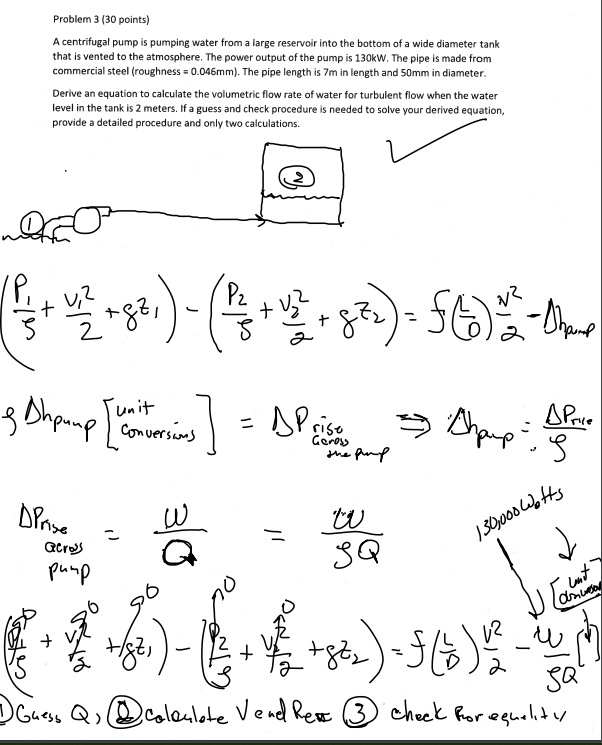 Problem 3 (30 points)
A centrifugal pump is pumping water from a large reservoir into the bottom of a wide diameter tank
that is vented to the atmosphere. The power output of the pump is 130kW. The pipe is made from
commercial steel (roughness = 0.046mm). The pipe length is 7m in length and 50mm in diameter.
Derive an equation to calculate the volumetric flow rate of water for turbulent flow when the water
level in the tank is 2 meters. If a guess and check procedure is needed to solve your derived equation,
provide a detailed procedure and only two calculations.
1
2
(P₁/ρ + V₁²/2 + gz₁) - (P₂/ρ + V₂²/2 + gz₂) = f(L/D) V²/2 - Δhpump
ρ Δhpump [unit conversions] = ΔPrise across the pump ⇒ Δhpump = ΔPrise/ρ
ΔPrise across pump = W/Q = W/ρQ
130,000 Watts
[unit conversion]
(P₁/ρ→0 + V₁²/2→0 + gz₁→0) - (P₂/ρ→0 + V₂²/2→0 + gz₂) = f(L/D) V²/2 - W/ρQ []
① Guess Q, ② Calculate V and Re ③ check for equality